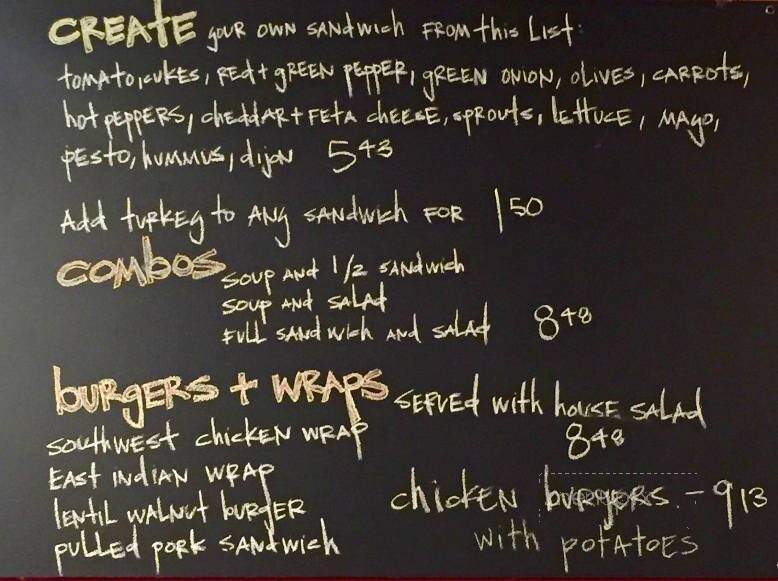 CREATE your own sandwich from this list:
tomato, cukes, red + green pepper, green onion, olives, carrots,
hot peppers, cheddar + feta cheese, sprouts, lettuce, mayo,
pesto, hummus, dijon 5 43
Add turkey to any sandwich for 1 50
combos soup and 1/2 sandwich
soup and salad
full sandwich and salad 8 48
burgers + wraps served with house salad
southwest chicken wrap 8 48
East Indian wrap
lentil walnut burger chicken burgers - 9 13
pulled pork sandwich with potatoes